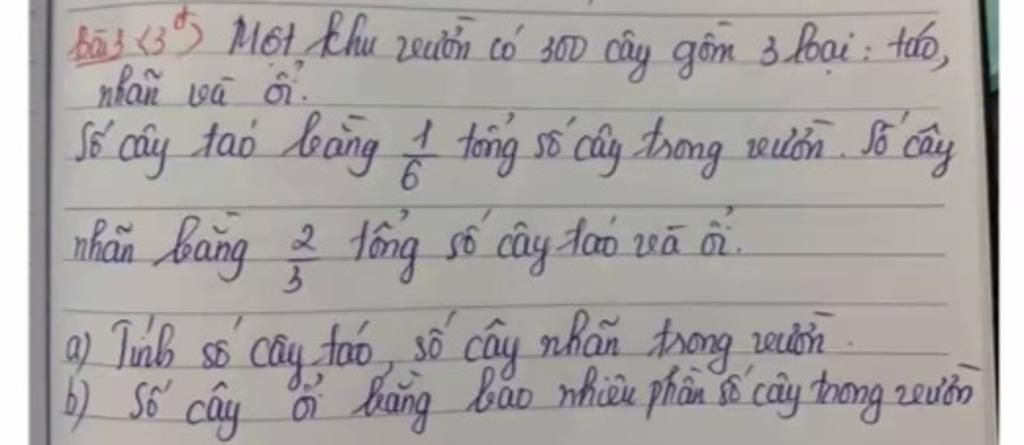 Bài 3 (3đ) Một khu vườn có 300 cây gồm 3 loại: táo,
nhãn và ổi.
Số cây táo bằng 1/6 tổng số cây trong vườn. Số cây
nhãn bằng 2/3 tổng số cây táo và ổi.
a) Tính số cây táo, số cây nhãn trong vườn.
b) Số cây ổi bằng bao nhiêu phần số cây trong vườn